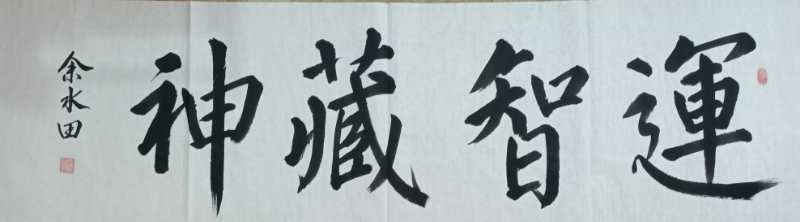 運智藏神
余水田